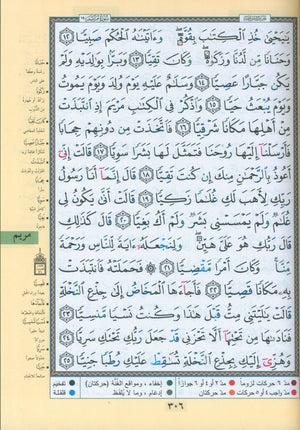 يَٰيَحْيَىٰ خُذِ ٱلْكِتَٰبَ بِقُوَّةٍ ۖ وَءَاتَيْنَٰهُ ٱلْحُكْمَ صَبِيًّا ١٢
وَحَنَانًا مِّن لَّدُنَّا وَزَكَوٰةً ۖ وَكَانَ تَقِيًّا ١٣ وَبَرًّۢا بِوَٰلِدَيْهِ وَلَمْ
يَكُن جَبَّارًا عَصِيًّا ١٤ وَسَلَٰمٌ عَلَيْهِ يَوْمَ وُلِدَ وَيَوْمَ يَمُوتُ
وَيَوْمَ يُبْعَثُ حَيًّا ١٥ وَٱذْكُرْ فِى ٱلْكِتَٰبِ مَرْيَمَ إِذِ ٱنتَبَذَتْ
مِنْ أَهْلِهَا مَكَانًا شَرْقِيًّا ١٦ فَٱتَّخَذَتْ مِن دُونِهِمْ حِجَابًا
فَأَرْسَلْنَآ إِلَيْهَا رُوحَنَا فَتَمَثَّلَ لَهَا بَشَرًا سَوِيًّا ١٧ قَالَتْ إِنِّىٓ
أَعُوذُ بِٱلرَّحْمَٰنِ مِنكَ إِن كُنتَ تَقِيًّا ١٨ قَالَ إِنَّمَآ أَنَا۠ رَسُولُ
رَبِّكِ لِأَهَبَ لَكِ غُلَٰمًا زَكِيًّا ١٩ قَالَتْ أَنَّىٰ يَكُونُ لِى
غُلَٰمٌ وَلَمْ يَمْسَسْنِى بَشَرٌ وَلَمْ أَكُ بَغِيًّا ٢٠ قَالَ كَذَٰلِكِ
قَالَ رَبُّكِ هُوَ عَلَىَّ هَيِّنٌ ۖ وَلِنَجْعَلَهُۥٓ ءَايَةً لِّلنَّاسِ وَرَحْمَةً
مِّنَّا ۚ وَكَانَ أَمْرًا مَّقْضِيًّا ٢١ ۞ فَحَمَلَتْهُ فَٱنتَبَذَتْ
بِهِۦ مَكَانًا قَصِيًّا ٢٢ فَأَجَآءَهَا ٱلْمَخَاضُ إِلَىٰ جِذْعِ ٱلنَّخْلَةِ
قَالَتْ يَٰلَيْتَنِى مِتُّ قَبْلَ هَٰذَا وَكُنتُ نَسْيًا مَّنسِيًّا ٢٣
فَنَادَىٰهَا مِن تَحْتِهَآ أَلَّا تَحْزَنِى قَدْ جَعَلَ رَبُّكِ تَحْتَكِ سَرِيًّا ٢٤
وَهُزِّىٓ إِلَيْكِ بِجِذْعِ ٱلنَّخْلَةِ تُسَٰقِطْ عَلَيْكِ رُطَبًا جَنِيًّا ٢٥
مريم
مدّ ٦ حركات لزوماً مدّ ٢ أو ٤ أو ٦ جوازاً إخفاء، ومواقع الغُنّة (حركتان) تفخيم
مدّ واجب ٤ أو ٥ حركات مدّ حركتان إدغام، وما لا يُلفظ قلقلة
٣٠٦